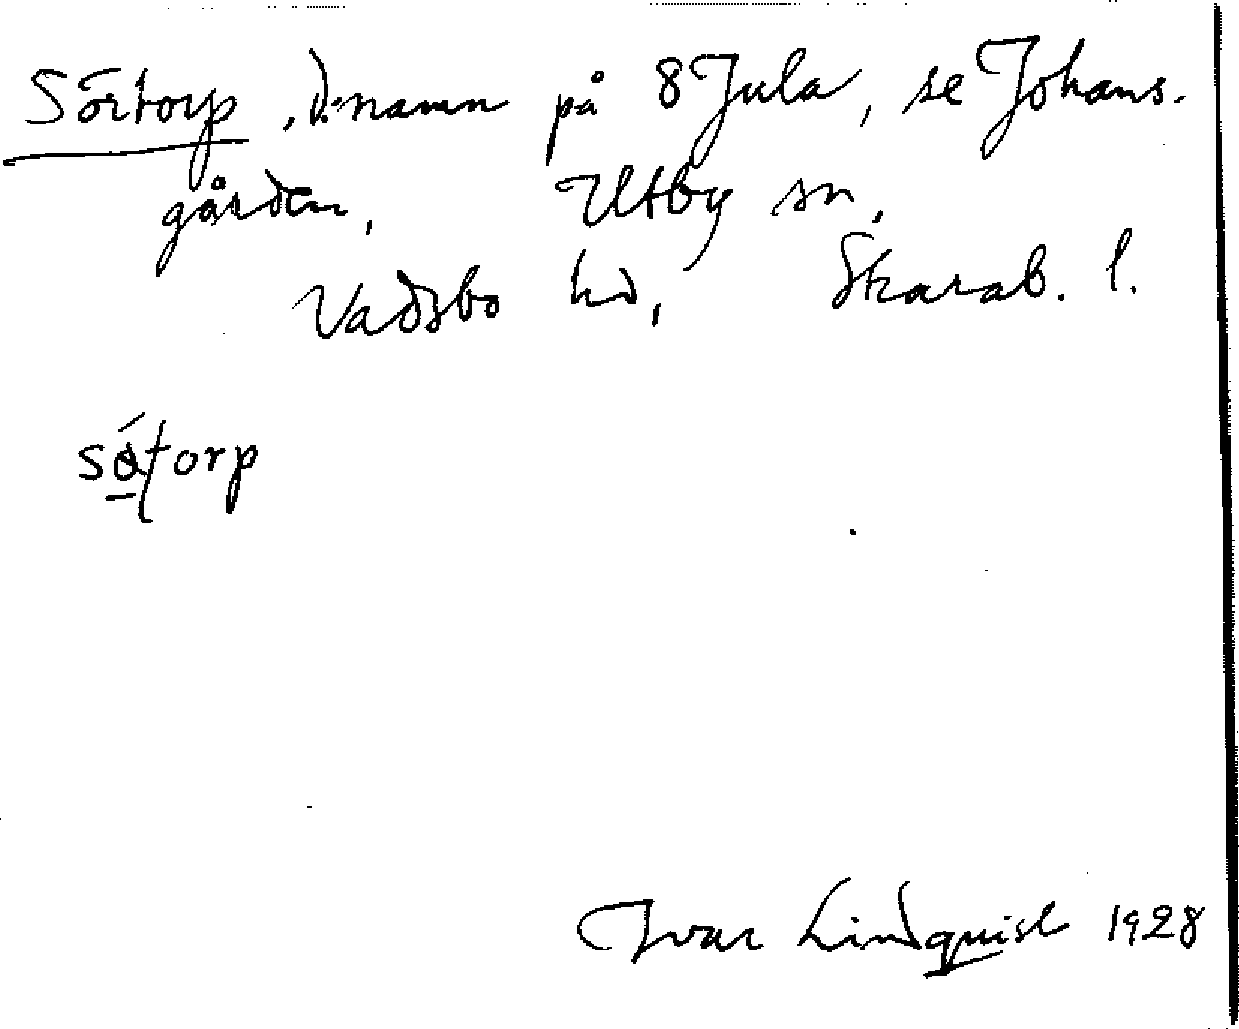 Sörtorp, d:namn på 8 Jula, se Johans-
gården, Utby sn,
Vadsbo hd, Skarab. l.
torp
Ivar Lindquist 1928